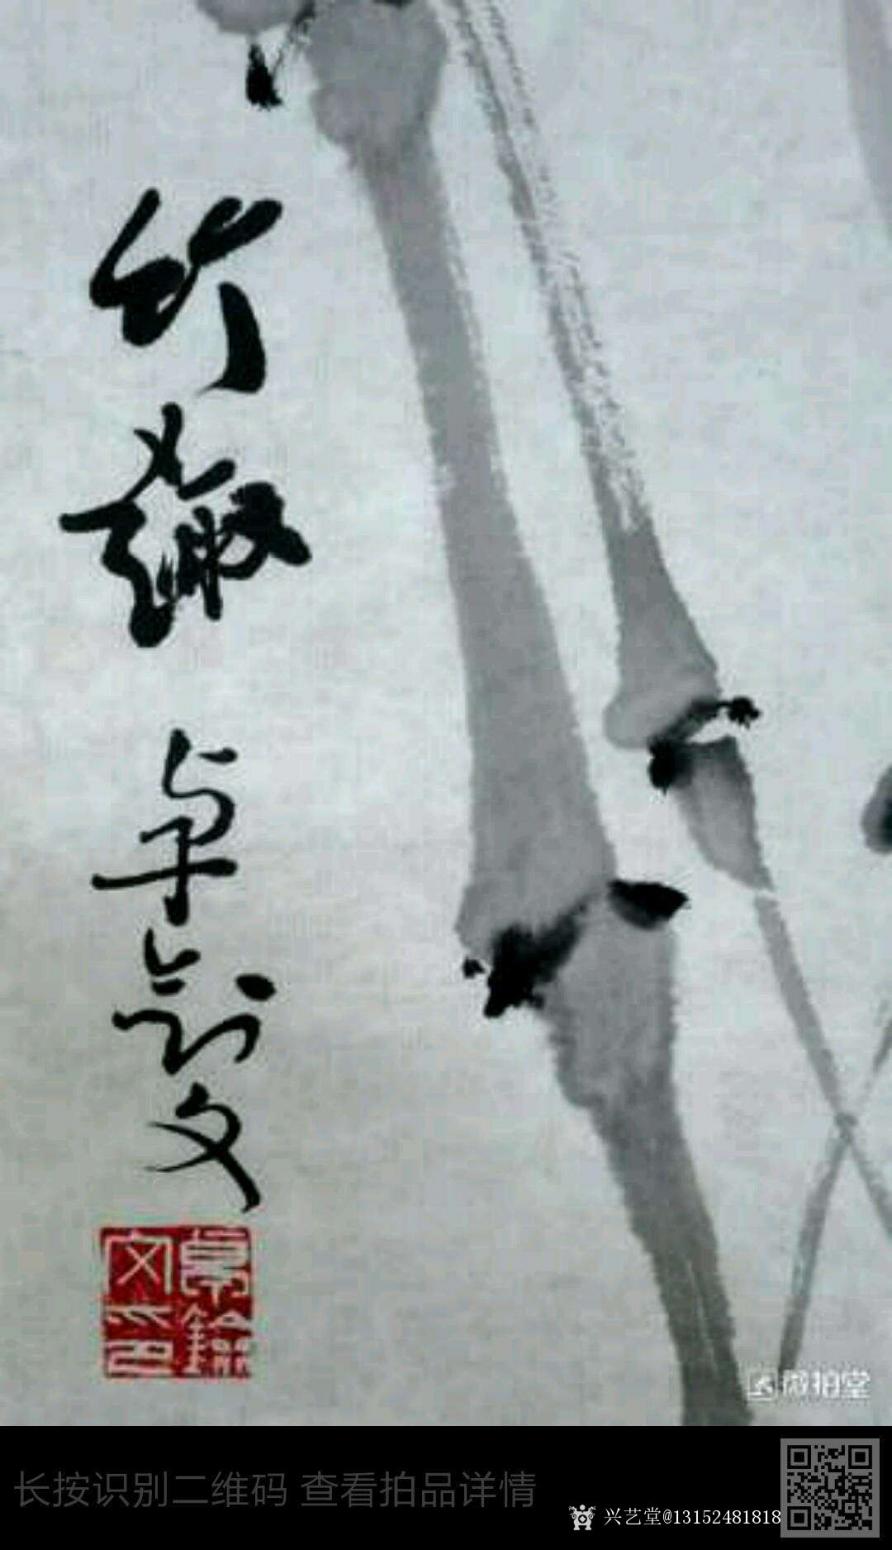 竹趣
卓剑文
微拍堂
长按识别二维码 查看拍品详情
兴艺堂@13152481818